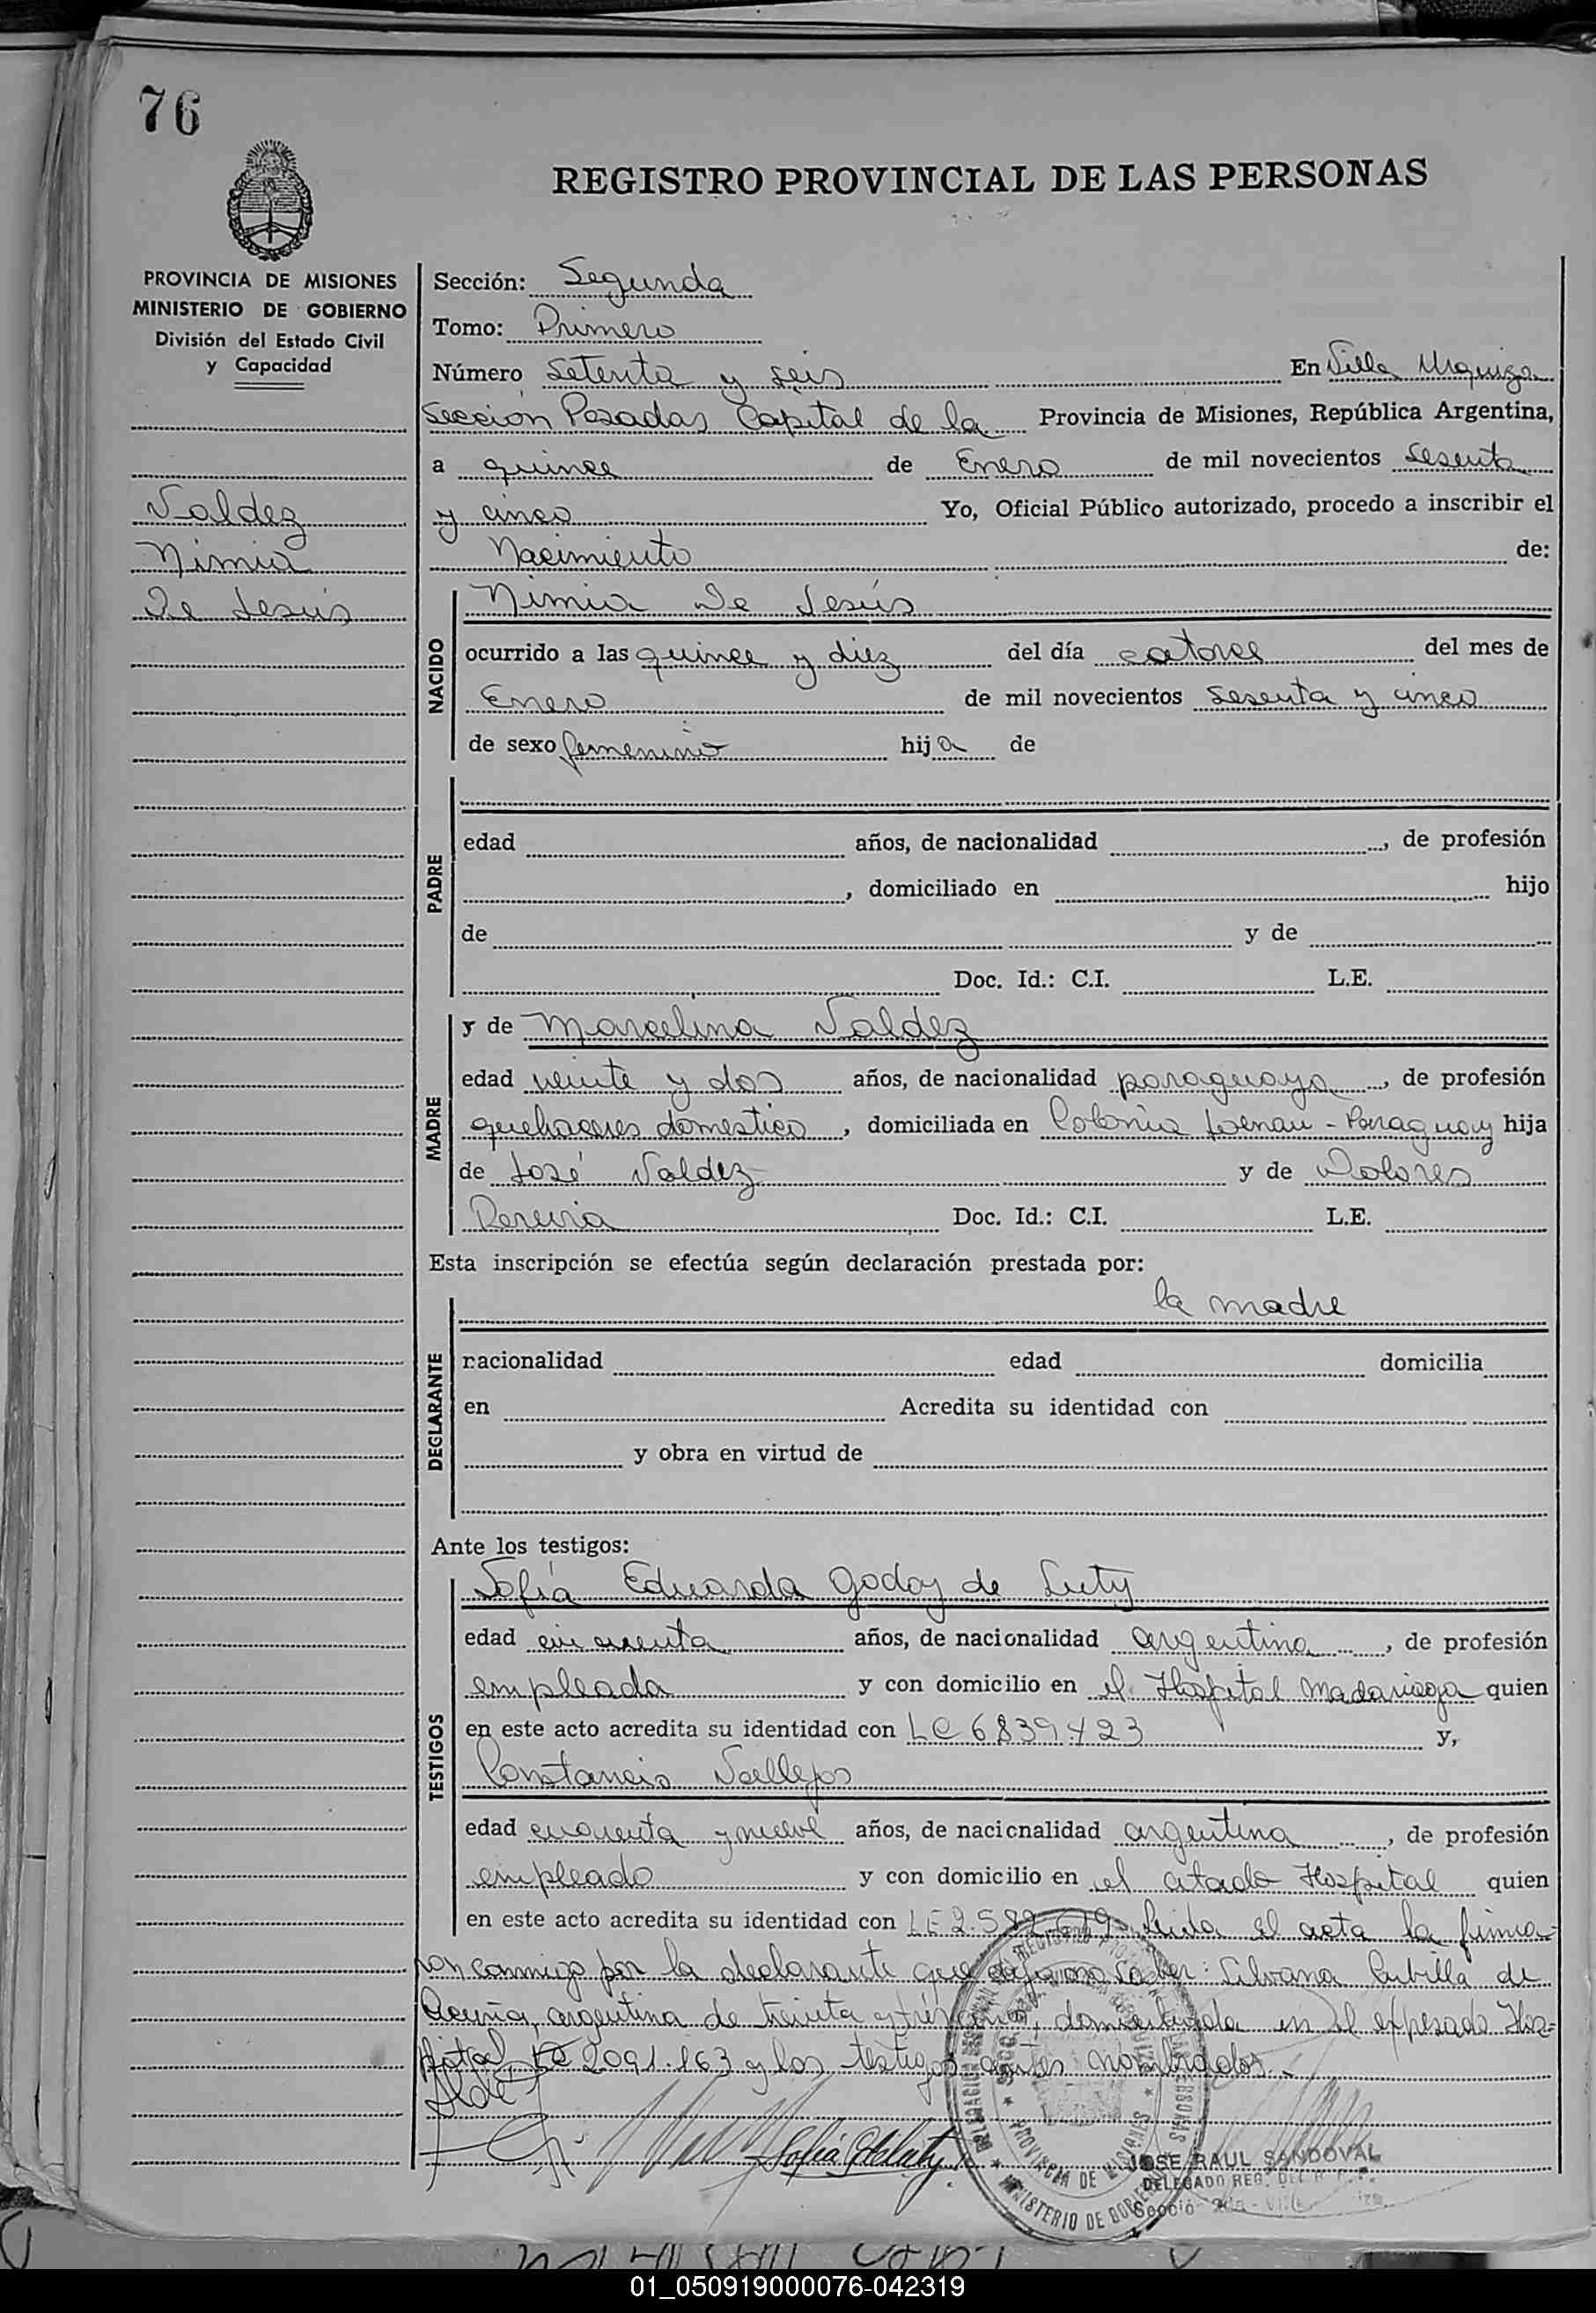 76
REGISTRO PROVINCIAL DE LAS PERSONAS
PROVINCIA DE MISIONES
MINISTERIO DE GOBIERNO
División del Estado Civil
y Capacidad
Valdez
Nimia
De Jesús
Sección: Segunda
Tomo: Primero
Número setenta y seis En Villa Urquiza
Sección Posadas Capital de la Provincia de Misiones, República Argentina,
a quince de Enero de mil novecientos sesenta
y cinco Yo, Oficial Público autorizado, procedo a inscribir el
Nacimiento de:
NACIDO
Nimia De Jesús
ocurrido a las quince y diez del día catorce del mes de
Enero de mil novecientos sesenta y cinco
de sexo femenino hija de
PADRE
edad años, de nacionalidad , de profesión
, domiciliado en hijo
de y de
Doc. Id.: C.I. L.E.
MADRE
y de Marcelina Valdez
edad veinte y dos años, de nacionalidad paraguaya , de profesión
quehaceres domestico , domiciliada en Colonia Hoenau - Paraguay hija
de José Valdez y de Dolores
Pereira Doc. Id.: C.I. L.E.
Esta inscripción se efectúa según declaración prestada por:
la madre
DECLARANTE
nacionalidad edad domicilia
en Acredita su identidad con
y obra en virtud de
Ante los testigos:
TESTIGOS
Sofía Eduarda Godoy de Luty
edad cincuenta años, de nacionalidad argentina , de profesión
empleada y con domicilio en el Hospital Madariaga quien
en este acto acredita su identidad con LC 6839.423 y,
Constancio Vallejos
edad cuarenta y nueve años, de nacionalidad argentina , de profesión
empleado y con domicilio en el citado Hospital quien
en este acto acredita su identidad con LE 2.582. Leida el acta la firma-
ron conmigo por la declarante que dijo no saber: Silvana Cubilla de
Acuña, argentina de treinta y tres años, domiciliada en el expresado Hos=
pital, LC 2091.163 y los testigos antes nombrados.
Sofía G de Luty
JOSE RAUL SANDOVAL
DELEGADO REG.
PROVINCIA DE MISIONES
MINISTERIO DE GOBIERNO
01_050919000076-042319